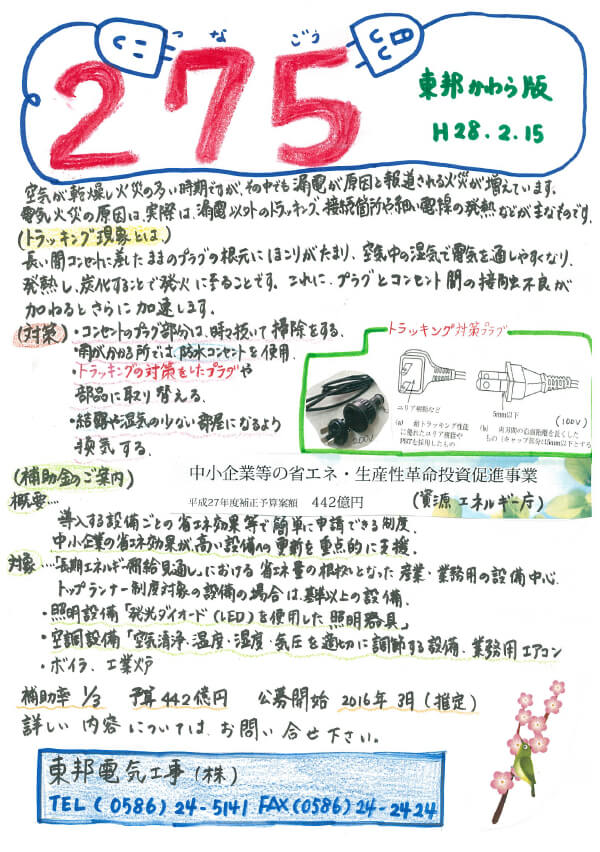 つなごう
275
東邦かわら版
H28.2.15
空気が乾燥し火災の多い時期ですが、その中でも漏電が原因と報道される火災が増えています。
電気火災の原因は、実際は、漏電以外のトラッキング、接続箇所や細い電線の発熱などが主なものです。
(トラッキング現象とは、)
長い間コンセントに差したままのプラグの根元にほこりがたまり、空気中の湿気で電気を通しやすくなり、
発熱し、炭化することで発火に至ることです。これに、プラグとコンセント間の接触不良が
加わるとさらに加速します。
(対策)・コンセントのプラグ部分は、時々抜いて掃除をする。
・雨がかかる所では、防水コンセントを使用。
・トラッキングの対策をしたプラグや
部品に取り替える。
・結露や湿気の少ない部屋になるよう
換気する。
トラッキング対策プラグ
200V
ユリア樹脂など
(a) 耐トラッキング性能
に優れたユリア樹脂や
PBTを採用したもの
5mm以下
(100V)
(b) 両刃間の沿面距離を長くした
もの(キャップ部分は5mm以下とする
(補助金のご案内)
中小企業等の省エネ・生産性革命投資促進事業
平成27年度補正予算案額 442億円
(資源エネルギー庁)
概要…
導入する設備ごとの省エネ効果等で簡単に申請できる制度。
中小企業の省エネ効果が高い設備への更新を重点的に支援。
対象…「長期エネルギー需給見通し」における省エネ量の根拠となった産業・業務用の設備中心。
トップランナー制度対象の設備の場合は、基準以上の設備。
・照明設備「発光ダイオード(LED)を使用した照明器具」
・空調設備「空気清浄、温度・湿度・気圧を適切に調節する設備、業務用エアコン
・ボイラ、工業炉
補助率 1/3 予算442億円 公募開始 2016年3月(推定)
詳しい内容については、お問い合せ下さい。
東邦電気工事(株)
TEL(0586)24-5141 FAX(0586)24-2424